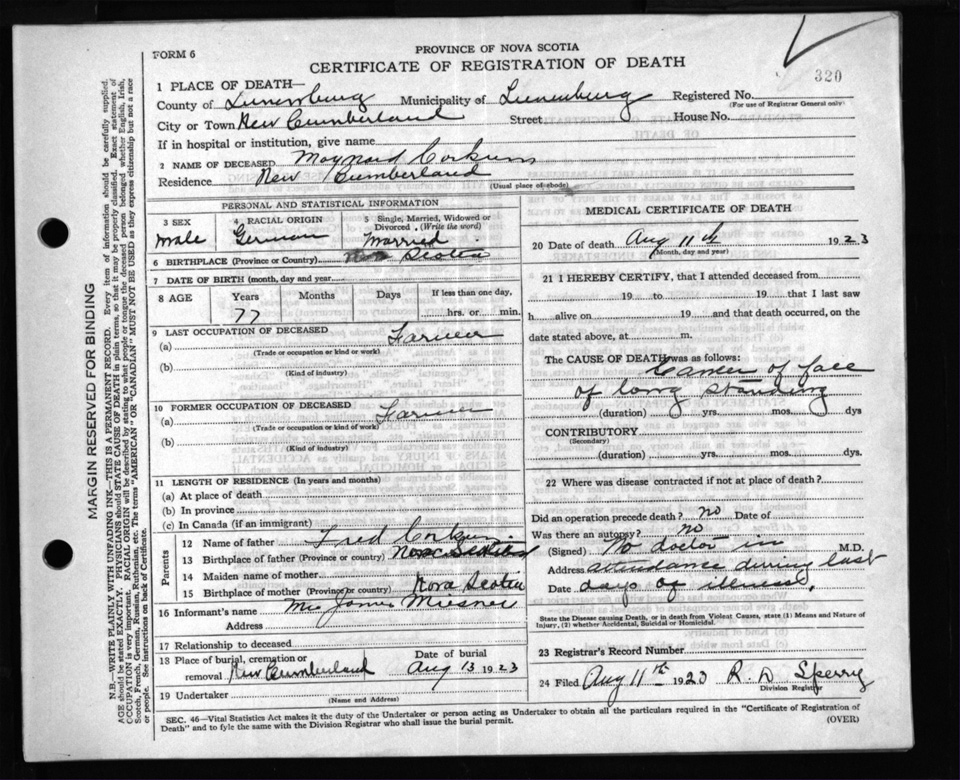 FORM 6
PROVINCE OF NOVA SCOTIA
CERTIFICATE OF REGISTRATION OF DEATH
320
1 PLACE OF DEATH—
County of Lunenburg Municipality of Lunenburg Registered No.
(For use of Registrar General only)
City or Town New Cumberland Street House No.
If in hospital or institution, give name
2 NAME OF DECEASED Maynard Corkum
Residence New Cumberland
(Usual place of abode)
PERSONAL AND STATISTICAL INFORMATION
3 SEX
male
4 RACIAL ORIGIN
German
5 Single, Married, Widowed or Divorced. (Write the word)
Married
6 BIRTHPLACE (Province or Country) Nova Scotia
7 DATE OF BIRTH (month, day and year)
8 AGE Years Months Days If less than one day,
77 hrs. or min.
9 LAST OCCUPATION OF DECEASED
(a) Farmer
(Trade or occupation or kind of work)
(b)
(Kind of industry)
10 FORMER OCCUPATION OF DECEASED
(a) Farmer
(Trade or occupation or kind of work)
(b)
(Kind of industry)
11 LENGTH OF RESIDENCE (In years and months)
(a) At place of death
(b) In province
(c) In Canada (if an immigrant)
Parents
12 Name of father Fred Corkum
13 Birthplace of father (Province or country) Nova Scotia
14 Maiden name of mother
15 Birthplace of mother (Province or country) Nova Scotia
16 Informant's name James
Address
17 Relationship to deceased
18 Place of burial, cremation or removal New Cumberland
Date of burial
Aug 13 1923
19 Undertaker
(Name and Address)
MEDICAL CERTIFICATE OF DEATH
20 Date of death Aug 11th 1923
(Month, day and year)
21 I HEREBY CERTIFY, that I attended deceased from
19 to 19 that I last saw
h alive on 19 and that death occurred, on the
date stated above, at m.
The CAUSE OF DEATH was as follows:
Cancer of face
of long standing
(duration) yrs. mos. dys
CONTRIBUTORY
(Secondary)
(duration) yrs. mos. dys.
22 Where was disease contracted if not at place of death?
Did an operation precede death? no Date of
Was there an autopsy? no
(Signed) No doctor in M.D.
Address attendance during last
Date days of illness,
State the Disease causing Death, or in death from Violent Causes, state (1) Means and Nature of Injury, (2) whether Accidental, Suicidal or Homicidal.
23 Registrar's Record Number
24 Filed Aug 11th 1923 R. D. Sperry
Division Registrar
SEC. 46—Vital Statistics Act makes it the duty of the Undertaker or person acting as Undertaker to obtain all the particulars required in the "Certificate of Registration of
Death" and to fyle the same with the Division Registrar who shall issue the burial permit.
(OVER)
MARGIN RESERVED FOR BINDING
N.B.—WRITE PLAINLY WITH UNFADING INK—THIS IS A PERMANENT RECORD. Every item of information should be carefully supplied.
AGE should be stated EXACTLY. PHYSICIANS should STATE CAUSE OF DEATH in plain terms, so that it may be properly classified. Exact statement of
OCCUPATION is very important. RACIAL ORIGIN will be described by stating to what people or tongue the deceased person belonged whether English, Irish,
Scotch, French, German, Russian, Ruthenian, etc. The terms "AMERICAN" or "CANADIAN" MUST NOT BE USED as they express citizenship but not a race
or people. See instructions on back of Certificate.